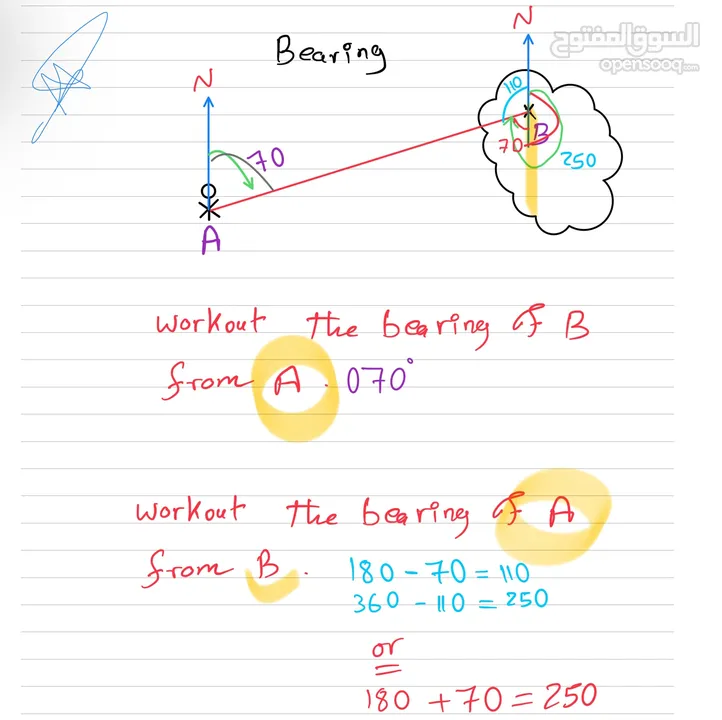 Bearing
N
السوق المفتوح
opensooq.com
N
110
70
B
70
250
A
workout the bearing of B
from A . 070°
workout the bearing of A
from B . 180 - 70 = 110
360 - 110 = 250
or
180 + 70 = 250